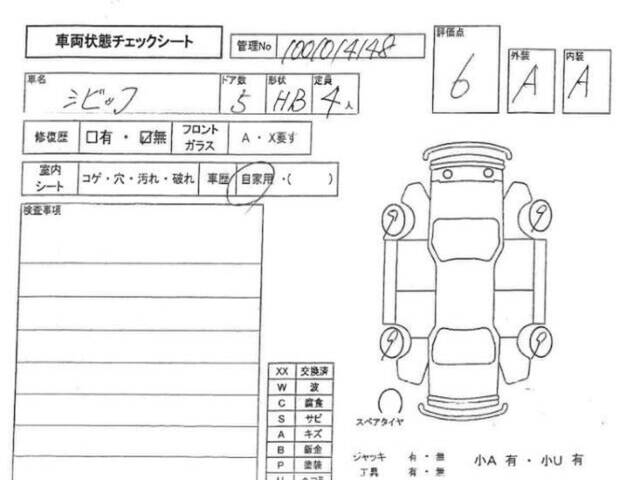 車両状態チェックシート
管理No 1001014148
評価点 6
外装 A
内装 A
車名 シビック
ドア数 5
形状 HB
定員 4人
修復歴 □有・☑無
フロントガラス A・X要す
室内シート コゲ・穴・汚れ・破れ
車歴 自家用・( )
検査事項
9 9
9 9
XX 交換済
W 波
C 腐食
S サビ
A キズ
B 鈑金
P 塗装
スペアタイヤ
ジャッキ 有・無
工具 有・無
小A 有・小U 有